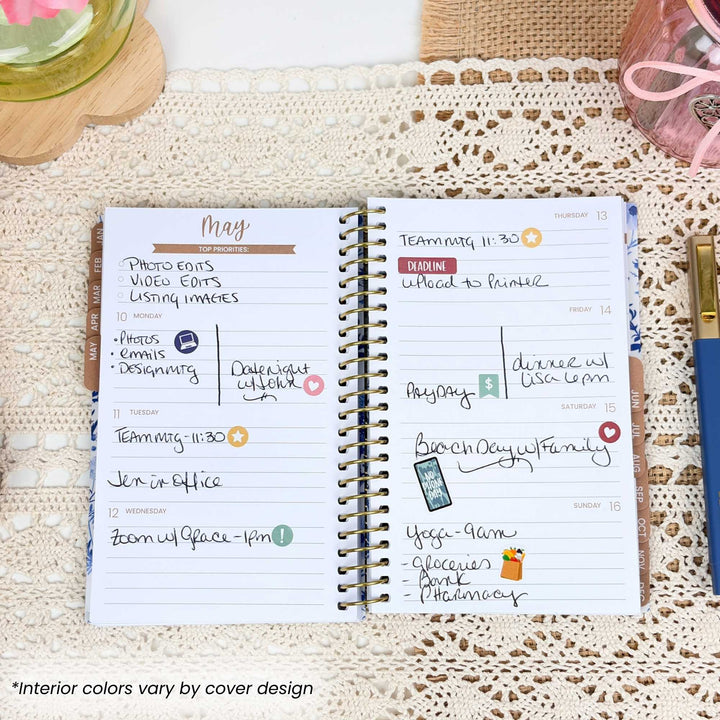 May
TOP PRIORITIES:
PHOTO EDITS
VIDEO EDITS
LISTING IMAGES
10 MONDAY
• PHOTOS
• emails
• DESIGN MTG
Date night
w/ John
11 TUESDAY
TEAM MTG - 11:30
Jen in Office
12 WEDNESDAY
Zoom w/ Grace - 1pm
!
JAN
FEB
MAR
APR
MAY
THURSDAY 13
TEAM MTG 11:30
DEADLINE
upload to Printer
FRIDAY 14
PAYDAY
$
dinner w/
Lisa 6pm
SATURDAY 15
Beach Day w/ Family
SUNDAY 16
Yoga - 9am
- groceries
- Bank
- PHarmacy
JUN
JUL
AUG
SEP
OCT
NOV
*Interior colors vary by cover design